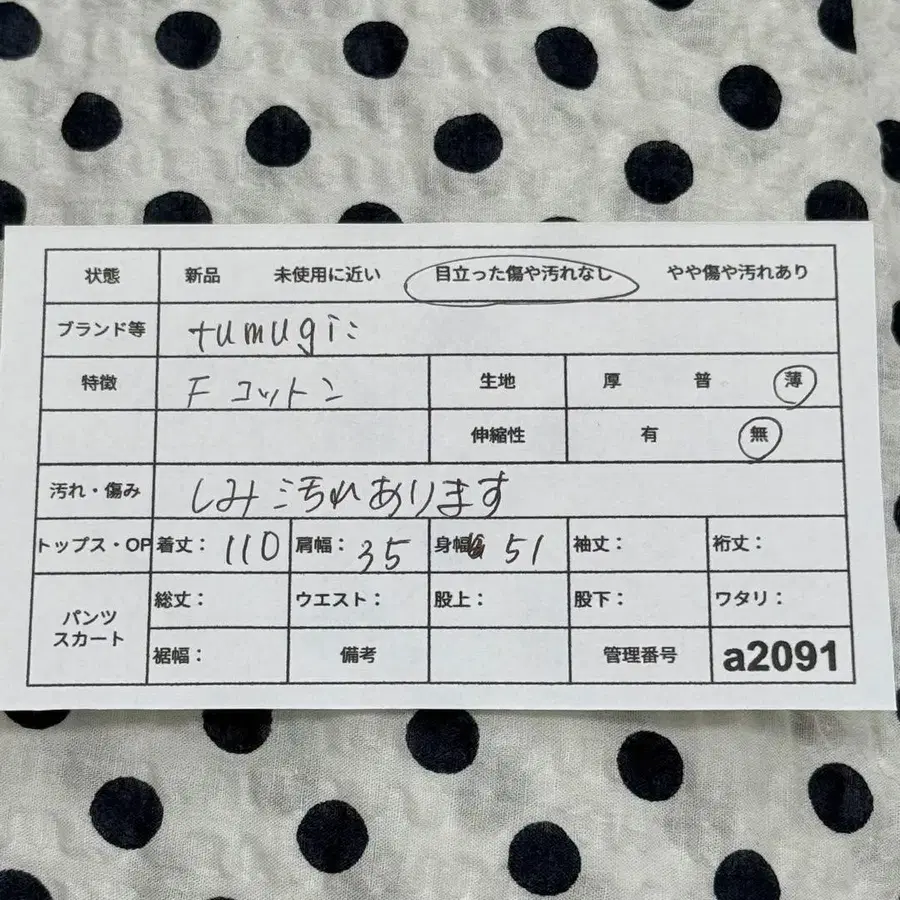 状態 新品 未使用に近い 目立った傷や汚れなし やや傷や汚れあり
ブランド等 tumugi:
特徴 F コットン 生地 厚 普 薄
伸縮性 有 無
汚れ・傷み しみ汚れあります
トップス・OP 着丈: 110 肩幅: 35 身幅 51 袖丈: 裄丈:
パンツ スカート 総丈: ウエスト: 股上: 股下: ワタリ:
裾幅: 備考 管理番号 a2091